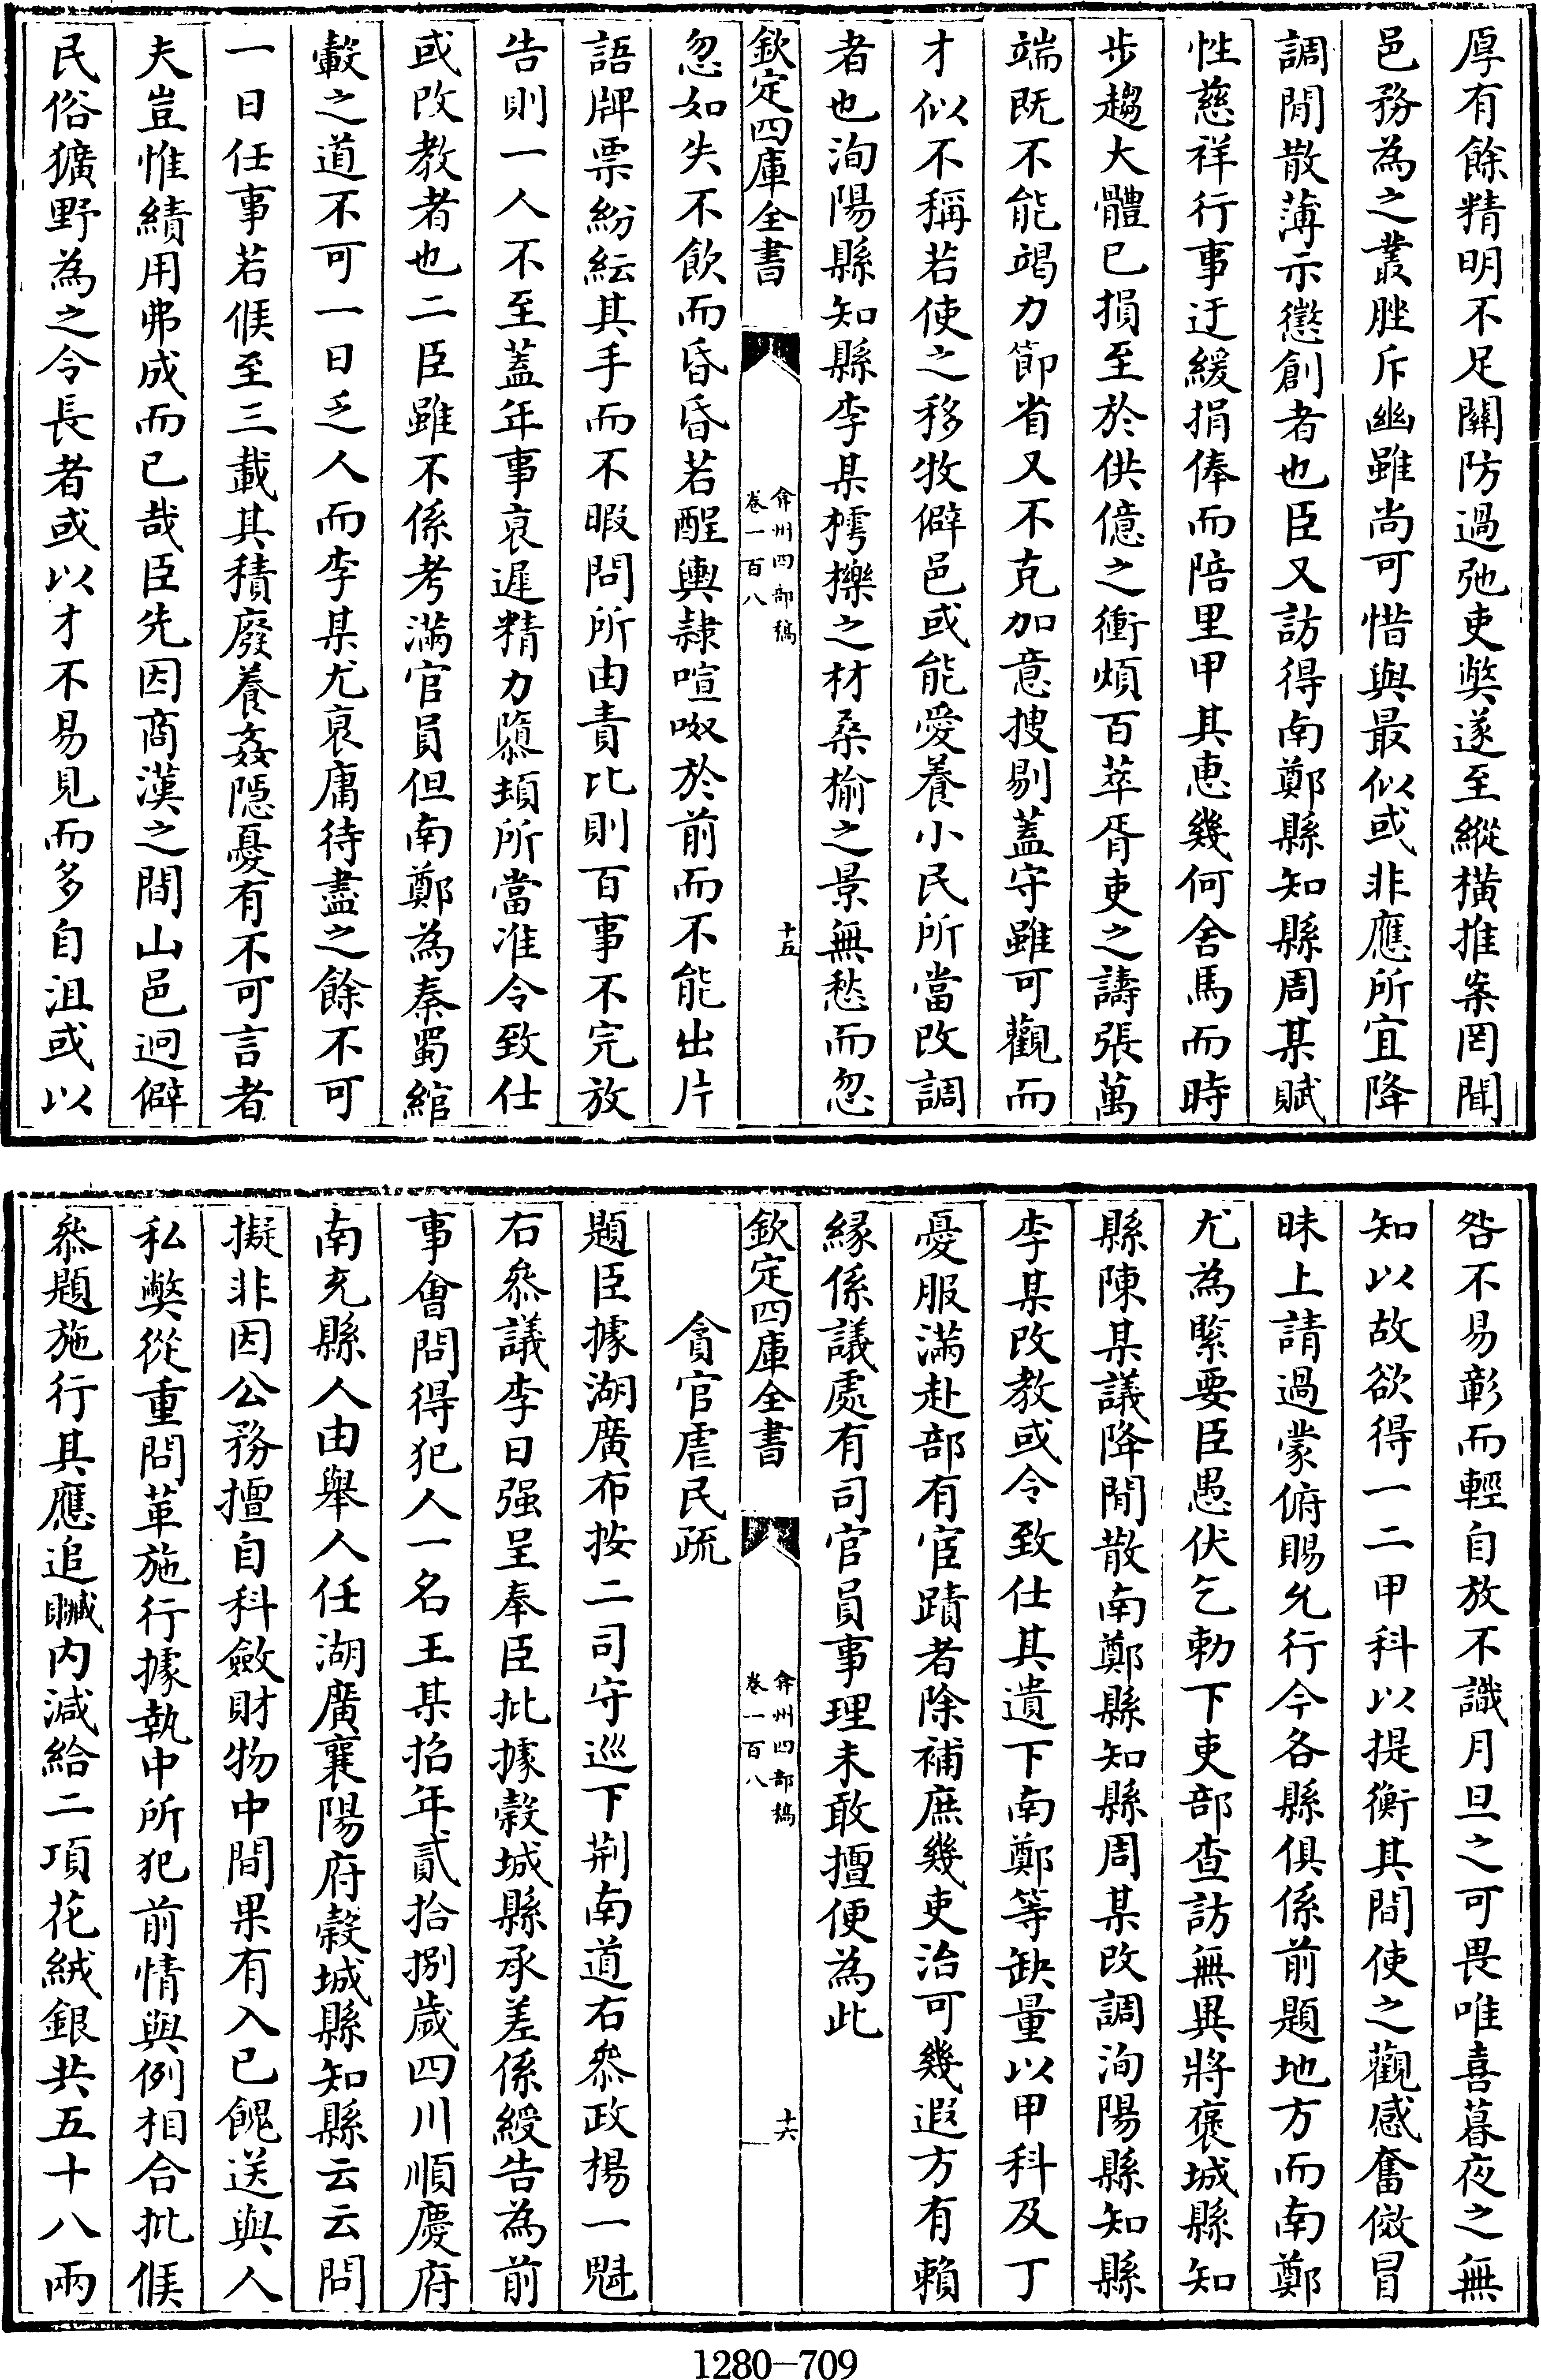 厚有餘精明不足關防過弛吏獘遂至縱橫推案罔聞
邑務為之叢脞斥幽雖尚可惜與最似或非應所宜降
調閒散薄示懲創者也臣又訪得南鄭縣知縣周某賦
性慈祥行事迂緩捐俸而陪里甲其惠幾何舍馬而時
步趨大體已損至於供億之衝煩百萃胥吏之譸張萬
端既不能竭力節省又不克加意搜剔蓋守雖可觀而
才似不稱若使之移牧僻邑或能愛養小民所當改調
者也洵陽縣知縣李某樗櫟之材桑榆之景無愁而忽
欽定四庫全書
弇州四部稿
卷一百八
十五
忽如失不飲而昏昏若酲輿隸喧呶於前而不能出片
語牌票紛紜其手而不暇問所由責比則百事不完放
告則一人不至蓋年事衰遲精力隳頹所當准令致仕
或改教者也二臣雖不係考滿官員但南鄭為秦蜀綰
轂之道不可一日乏人而李某尤衰庸待盡之餘不可
一日任事若候至三載其積廢養姦隱憂有不可言者
夫豈惟績用弗成而已哉臣先因商漢之間山邑迥僻
民俗獷野為之令長者或以才不易見而多自沮或以
咎不易彰而輕自放不識月旦之可畏唯喜暮夜之無
知以故欲得一二甲科以提衡其間使之觀感奮傚冒
昧上請過蒙俯賜允行今各縣俱係前題地方而南鄭
尤為緊要臣愚伏乞勅下吏部查訪無異將褒城縣知
縣陳某議降閒散南鄭縣知縣周某改調洵陽縣知縣
李某改教或令致仕其遺下南鄭等缺量以甲科及丁
憂服滿赴部有宦蹟者除補庶幾吏治可幾遐方有賴
緣係議處有司官員事理未敢擅便為此
欽定四庫全書
弇州四部稿
卷一百八
十六
貪官虐民疏
題臣據湖廣布按二司守巡下荆南道右叅政楊一魁
右叅議李日强呈奉臣批據榖城縣承差係綬告為前
事會問得犯人一名王某招年貳拾捌歲四川順慶府
南充縣人由舉人任湖廣襄陽府榖城縣知縣云云問
擬非因公務擅自科斂財物中間果有入已餽送與人
私獘從重問革施行據執中所犯前情與例相合批候
叅題施行其應追贓内減給二項花絨銀共五十八兩
1280-709